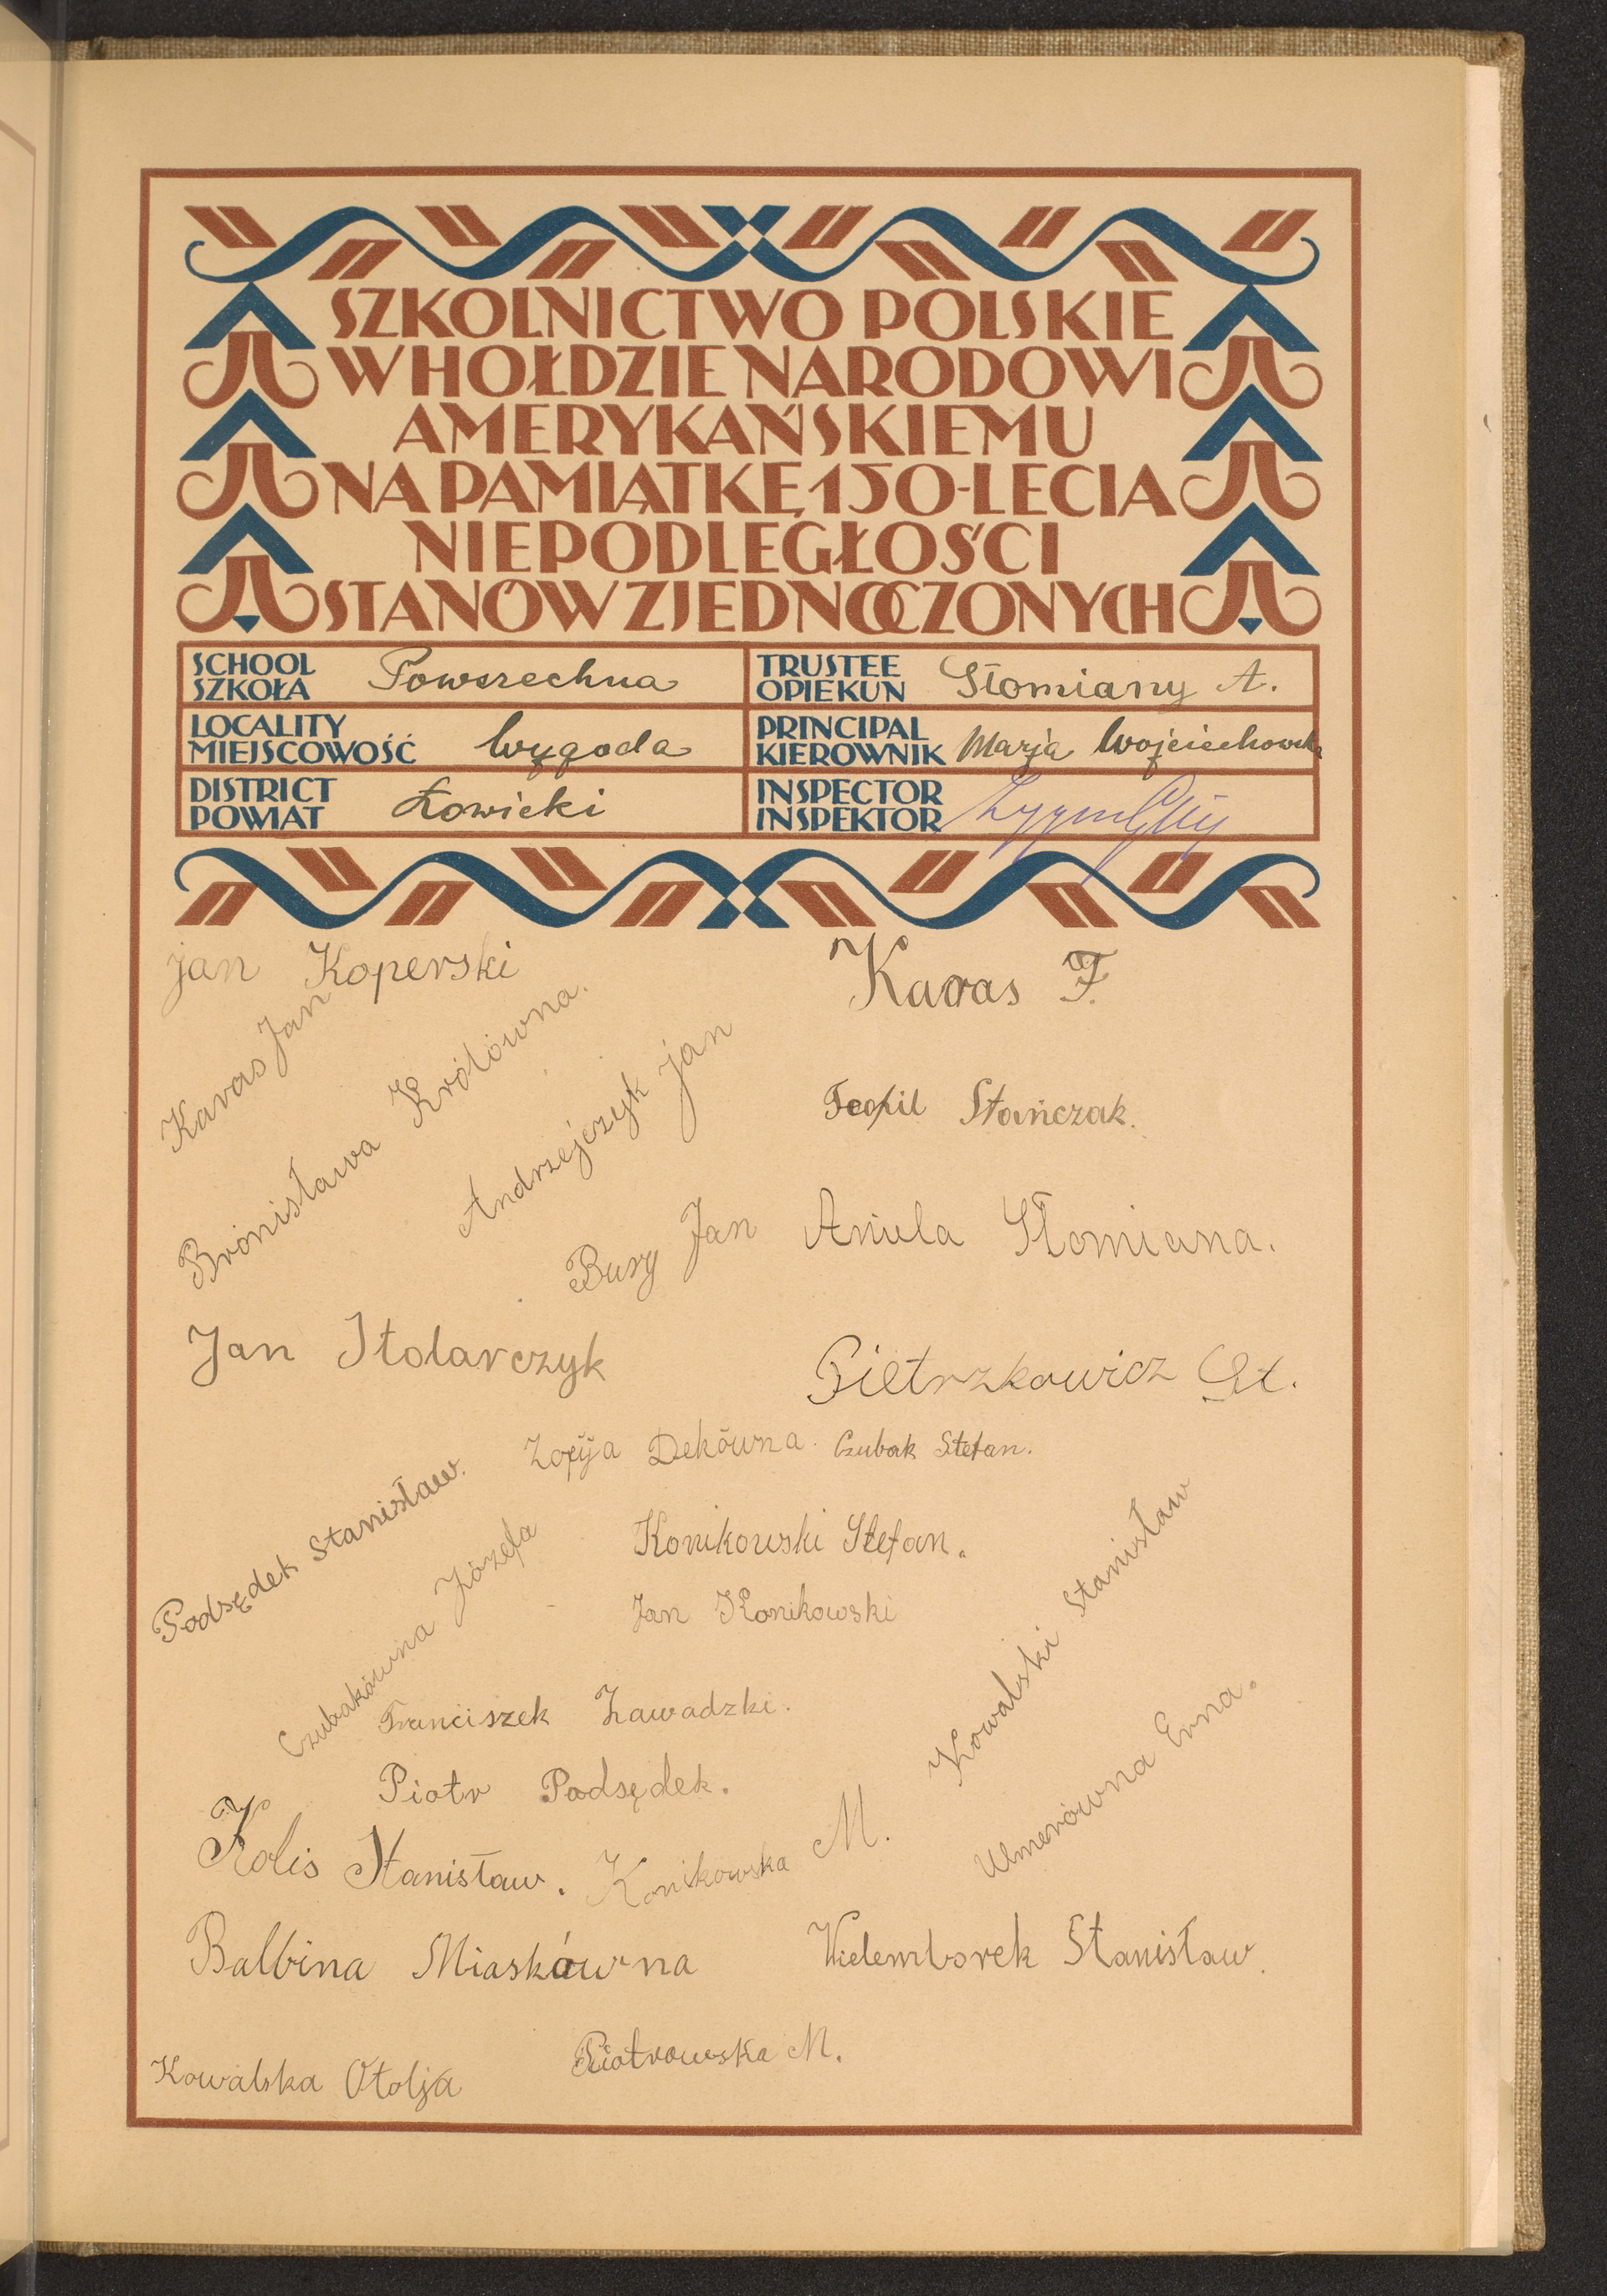 SZKOLNICTWO POLSKIE
W HOŁDZIE NARODOWI
AMERYKAŃSKIEMU
NA PAMIĄTKĘ 150-LECIA
NIEPODLEGŁOŚCI
STANÓW ZJEDNOCZONYCH
SCHOOL
SZKOŁA Powszechna
TRUSTEE
OPIEKUN Słomiany A.
LOCALITY
MIEJSCOWOŚĆ Wygoda
PRINCIPAL
KIEROWNIK Marja Wojciechowska
DISTRICT
POWIAT Łowicki
INSPECTOR
INSPEKTOR
jan Koperski
Karas F.
Karas Jan
Bronisława Królówna.
Andrzejczyk jan
Teofil Stańczak.
Bury Jan
Aniela Słomiana.
Jan Stolarczyk
Pietrzkowicz St.
Podsędek Stanisław.
Zofja Dekówna.
Czubak Stefan.
Czubakówna Józefa
Konikowski Stefan.
Jan Konikowski
Kowalski Stanisław
Franciszek Zawadzki.
Piotr Podsędek.
Ulmerówna Erna.
Kolis Stanisław.
Konikowska M.
Balbina Miaskówna
Wielemborek Stanisław.
Kowalska Otolja
Piotrowska M.